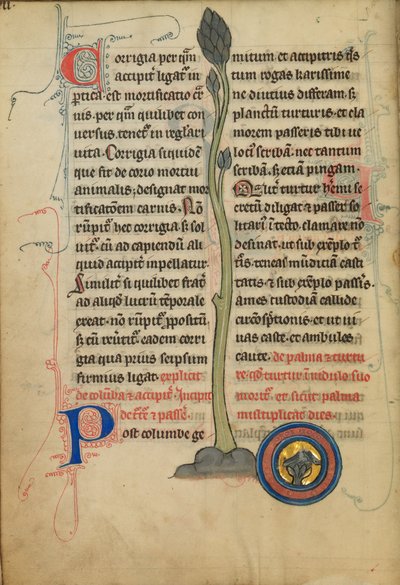 Corrigia per qm̄
accipit᷑ ligat᷑ in
ꝑtica · est mortificatio cr̄
uis · per qm̄ quilibet con
uersus · tenet᷑ in reglari
uita . Corrigia siquidē
que fit de corio mortui
animalis ; designat mor
tificatōem carnis . Nō
rūpit᷑ hec corrigia s; sol
uit᷑ · cū ad capiendū ali
quid accipit᷑ inpellatur .
Similit᷑ si quilibet frat᷑
ad aliqđ lucrū tēporale
exeat · nō rūpit᷑ ꝓpositū
s; cū · eadem corri
gia qua prius seipsum
firmius ligat . explicit
de colūba & accipit᷑ . Incipit
de & passe᷑ .
Post columbe ge
mitum et accipitris
tum rogas karissime
ne diutius differam s;
planctū turturis et cla
morem passeris tibi ue
loci᷑ scribam . nec tantum
scribam . s; etiā pingam .
turtur heꝛemi se
cretū diligat & passer so
litari᷑ ī tecto clamare nō
desinat . ut sub exēplo
teneas mūdiciam casti
tatis . & sub exēplo passis᷑
ames custodiam callide
circōspectionis . et ut ui
uas caste . et ambules
caute . de palma & turture
turtur ī nidulo suo
morit᷑ . et sicut palma
multiplicabit dies .